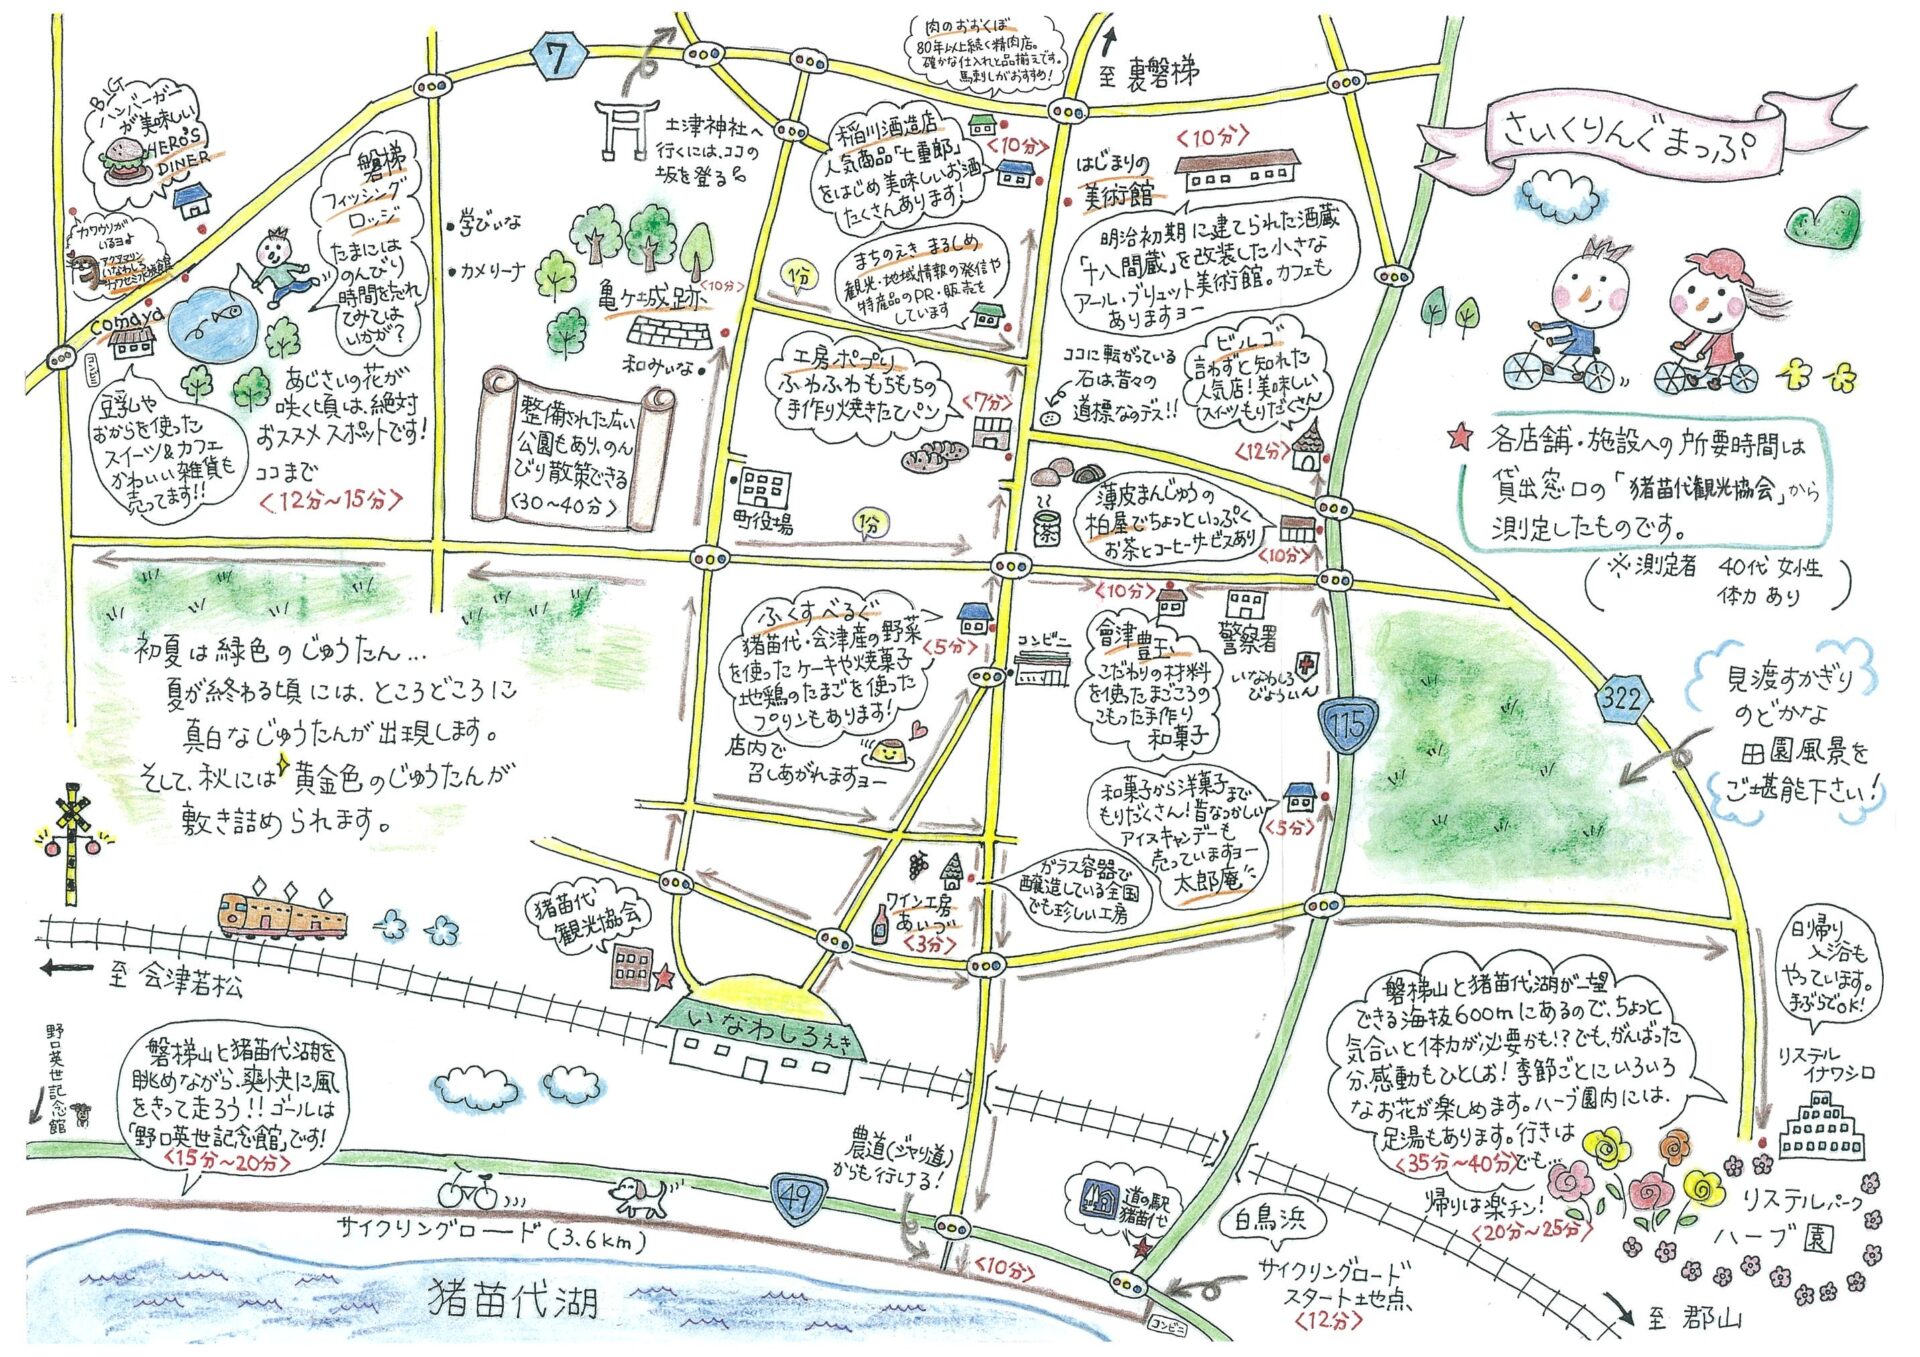 さいくりんぐまっぷ
★ 各店舗・施設への所要時間は
貸出窓口の「猪苗代観光協会」から
測定したものです。
(※測定者 40代 女性
体力 あり)
BIG
ハンバーガー
が美味しい
HERO'S
DINER
カワウソが
いるヨ♪
アクアマリン
いなわしろ
カワセミ水族館
磐梯
フィッシング
ロッジ
たまには
のんびり
時間を忘れ
てみては
いかが?
comaya
コンビニ
豆乳や
おからを使った
スイーツ&カフェ
かわいい雑貨も
売ってます!!
あじさいの花が
咲く頃は、絶対
おススメスポットです!
ココまで
<12分~15分>
7
土津神社へ
行くには、ココの
坂を登る
・学びいな
・カメリーナ
亀ヶ城跡
<10分>
和みいな・
整備された広い
公園もあり、のん
びり散策できる
<30~40分>
肉のおおくぼ
80年以上続く精肉店。
確かな仕入れと品揃えです。
馬刺しがおすすめ!
<10分>
至 裏磐梯
稲川酒造店
人気商品「七重郎」
をはじめ美味しいお酒
たくさんあります!
まちのえき まるしめ
観光・地域情報の発信や
特産品のPR・販売も
しています
1分
はじまりの
美術館
<10分>
明治初期に建てられた酒蔵
「十八間蔵」を改装した小さな
アール・ブリュット美術館。カフェも
ありますョー
工房ポプリ
ふわふわもちもちの
手作り焼きたてパン
<7分>
ココに転がっている
石は昔々の
道標なのデス!!
ビルゴ
言わずと知れた
人気店!美味しい
スイーツもりだくさん
<12分>
町役場
1分
茶
薄皮まんじゅうの
柏屋でちょっといっぷく
お茶とコーヒーサービスあり
<10分>
ふくすべるぐ
猪苗代・会津産の野菜
を使ったケーキや焼菓子
地鶏のたまごを使った
プリンもあります!
<5分>
店内で
召しあがれますョー
コンビニ
<10分>
會津豊玉
こだわりの材料
を使ったまごころの
こもった手作り
和菓子
警察署
いなわしろ
びょういん
115
322
見渡すかぎり
のどかな
田園風景を
ご堪能下さい!
初夏は緑色のじゅうたん…
夏が終わる頃には、ところどころに
真白なじゅうたんが出現します。
そして、秋には黄金色のじゅうたんが
敷き詰められます。
和菓子から洋菓子まで
もりだくさん!昔なつかしい
アイスキャンデーも
売っていますョー
太郎庵
<5分>
ワイン工房
あいづ
<3分>
ガラス容器で
醸造している全国
でも珍しい工房
猪苗代
観光協会
いなわしろえき
至 会津若松
野口英世記念館
磐梯山と猪苗代湖を
眺めながら、爽快に風
をきって走ろう!!ゴールは
「野口英世記念館」です!
<15分~20分>
サイクリングロード(3.6km)
49
猪苗代湖
農道(ジャリ道)
からも行ける!
<10分>
道の駅
猪苗代
白鳥浜
サイクリングロード
スタート地点
<12分>
コンビニ
至 郡山
磐梯山と猪苗代湖が一望
できる海抜600mにあるので、ちょっと
気合いと体力が必要かも!?でも、がんばった
分、感動もひとしお!季節ごとにいろいろ
なお花が楽しめます。ハーブ園内には、
足湯もあります。行きは
<35分~40分>でも…
帰りは楽チン!
<20分~25分>
日帰り
入浴も
やっています。
手ぶらでOK!
リステル
イナワシロ
リステルパーク
ハーブ園